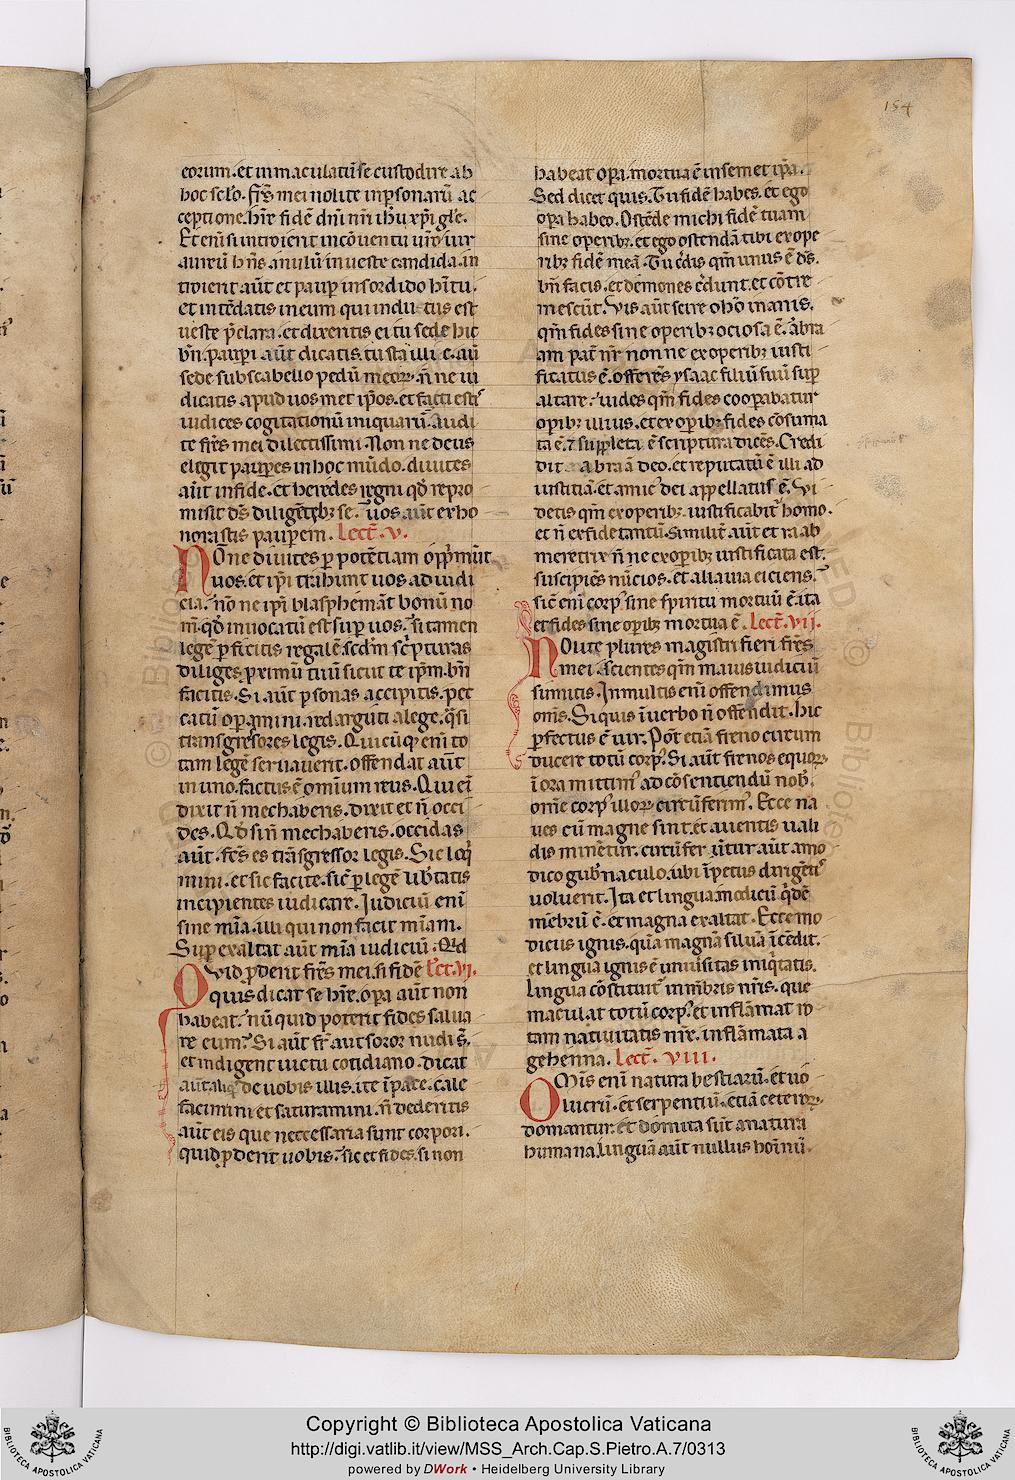 154
eorum. et inmaculatū se custodire ab
hoc sclo. frs̄ mei nolite in ꝑsonarū ac
ceptione. hr̄e fidē dn̄i nr̄i ihū xp̄i gl̄e.
Et enī si introierit in cōuentū ur̄m uir
aureū hn̄s anulū in ueste candida. in
troierit aūt et paup in sordido h̄itu.
et intēdatis in eum qui indutus est
ueste p̄clara. et dixeritis ei tu sede hic
bn̄. pauꝑi aūt dicatis. tu sta illic. aūt
sede sub scabello pedū meoꝝ. n̄ ne iu
dicatis apud uos met ip̄os. et facti estis
iudices cogitationū iniquarū. Audi
te frs̄ mei dilectissimi. Non ne deus
elegit pauꝑes in hoc mūdo. diuites
aūt in fide. et heredes regni qd̄ repro
misit ds̄ diligētꝫ se. uos aūt exho
norastis pauꝑem. Lect̄. v.
None diuites ꝑ potētiam opp̄munt
uos. et ip̄i trahunt uos ad iudi
cia. nō ne ip̄i blasphemāt bonū no
m̄. qd̄ inuocatū est suꝑ uos. si tamen
legē ꝑficitis regalē. scd̄m sc̄pturas
diliges ꝓximū tuū sicut te ip̄m. bn̄
facitis. Si aūt ꝑsonas accipitis. pec
catū oꝑamini. redarguti a lege. q̄si
transgresores legis. Quicūqꝫ enī to
tam legē seruauerit. offendat aūt
in uno. factus ē omīum reus. Qui eī
dixit n̄ mechaberis. dixit et n̄ occi
des. Qd̄ si n̄ mechaberis. occidas
aūt. fcs̄ es trāsgressor legis. Sic loq̄
mini. et sic facite. sic̄ ꝑ legē lib̄tatis
incipientes iudicare. Judiciū enī
sine mīa. illi qui non facit mīam.
Suꝑexaltat aūt mīa iudiciū. Qd
Quid ꝓderit frs̄ mei. si fidē Lc̄t. vi.
quis dicat se hr̄e. oꝑa aūt non
habeat. nū quid poterit fides salua
re eum. Si aūt fr̄ aut soror nudi s̄.
et indigent uictu cotidiano. dicat
aūt aliq̄ de uobis illis. ite ī pace. cale
facimini et saturamini. n̄ dederitis
aūt eis que necessaria sunt corpori.
quid ꝓderit uobis. sic et fides. si non
habeat oꝑa. mortua ē in semet ip̄a.
Sed dicet quis. Tu fidē habes. et ego
oꝑa habeo. Ostēde michi fidē tuam
sine operibꝫ. et ego ostendā tibi ex ope
ribꝫ fidē meā. Tu c̄dis qm̄ unus ē ds̄.
bn̄ facis. et demones c̄dunt. et cōtre
mescūt. Vis aūt scire o hō inanis.
qm̄ fides sine operibꝫ ociosa ē. Abra
am pat̄ nr̄ non ne ex operibꝫ iusti
ficatus ē. offerēs ysaac filiū suū suꝑ
altare. uides qm̄ fides cooꝑabatur
oꝑibꝫ illius. et ex oꝑibꝫ fides cōsuma
ta ē. ⁊ suppleta ē scriptura dicēs. Credi
dit abraā deo. et reputatū ē illi ad
iustitiā. et amic̄ dei appellatus ē. Vi
detis qm̄ ex operibꝫ iustificabit̄ homo.
et n̄ ex fide tantū. Similit̄ aūt et raab
meretrix n̄ ne ex oꝑibꝫ iustificata est.
suscipiēs nūcios. et alia uia eiciens.
sic̄ enī corpꝰ sine spiritu mortuū ē. ita
et fides sine oꝑibꝫ mortua ē. Lect̄. vii.
Nolite plures magistri fieri frēs
mei. scientes qm̄ maius iudiciū
sumitis. In multis enī offendimus
oms̄. Si quis ī uerbo n̄ offendit. hic
ꝑfectus ē uir. Pōt etiā freno circum
ducere totū corpꝰ. Si aūt frenos equoꝝ
ī ora mittimꝰ ad cōsentiendū nob̄.
om̄e corpꝰ illoꝝ circūferimꝰ. Ecce na
ues cū magne sint. et a uentis uali
dis minētur. circūferūtur aūt a mo
dico gub̄naculo. ubi īpetus dirigētꝭ
uoluerit. Ita et lingua modicū q̄dē
mēbrū ē. et magna exaltat. Ecce mo
dicus ignis. quā magnā siluā īcēdit.
et lingua ignis ē uniūsitas iniq̄tatis.
Lingua cōstituit̄ in mēbris nr̄is. que
maculat totū corpꝰ. et inflāmat ro
tam natiuitatis nr̄e. inflāmata a
gehenna. Lect̄. viii.
Om̄is enī natura bestiarū. et uo
lucrū. et serpentiū. etiā ceteroꝝ.
domantur. et domita sūt a natura
humana. linguā aūt nullus hoīnū.
Copyright © Biblioteca Apostolica Vaticana
http://digi.vatlib.it/view/MSS_Arch.Cap.S.Pietro.A.7/0313
powered by DWork • Heidelberg University Library
BIBLIOTECA APOSTOLICA VATICANA
BIBLIOTECA APOSTOLICA VATICANA